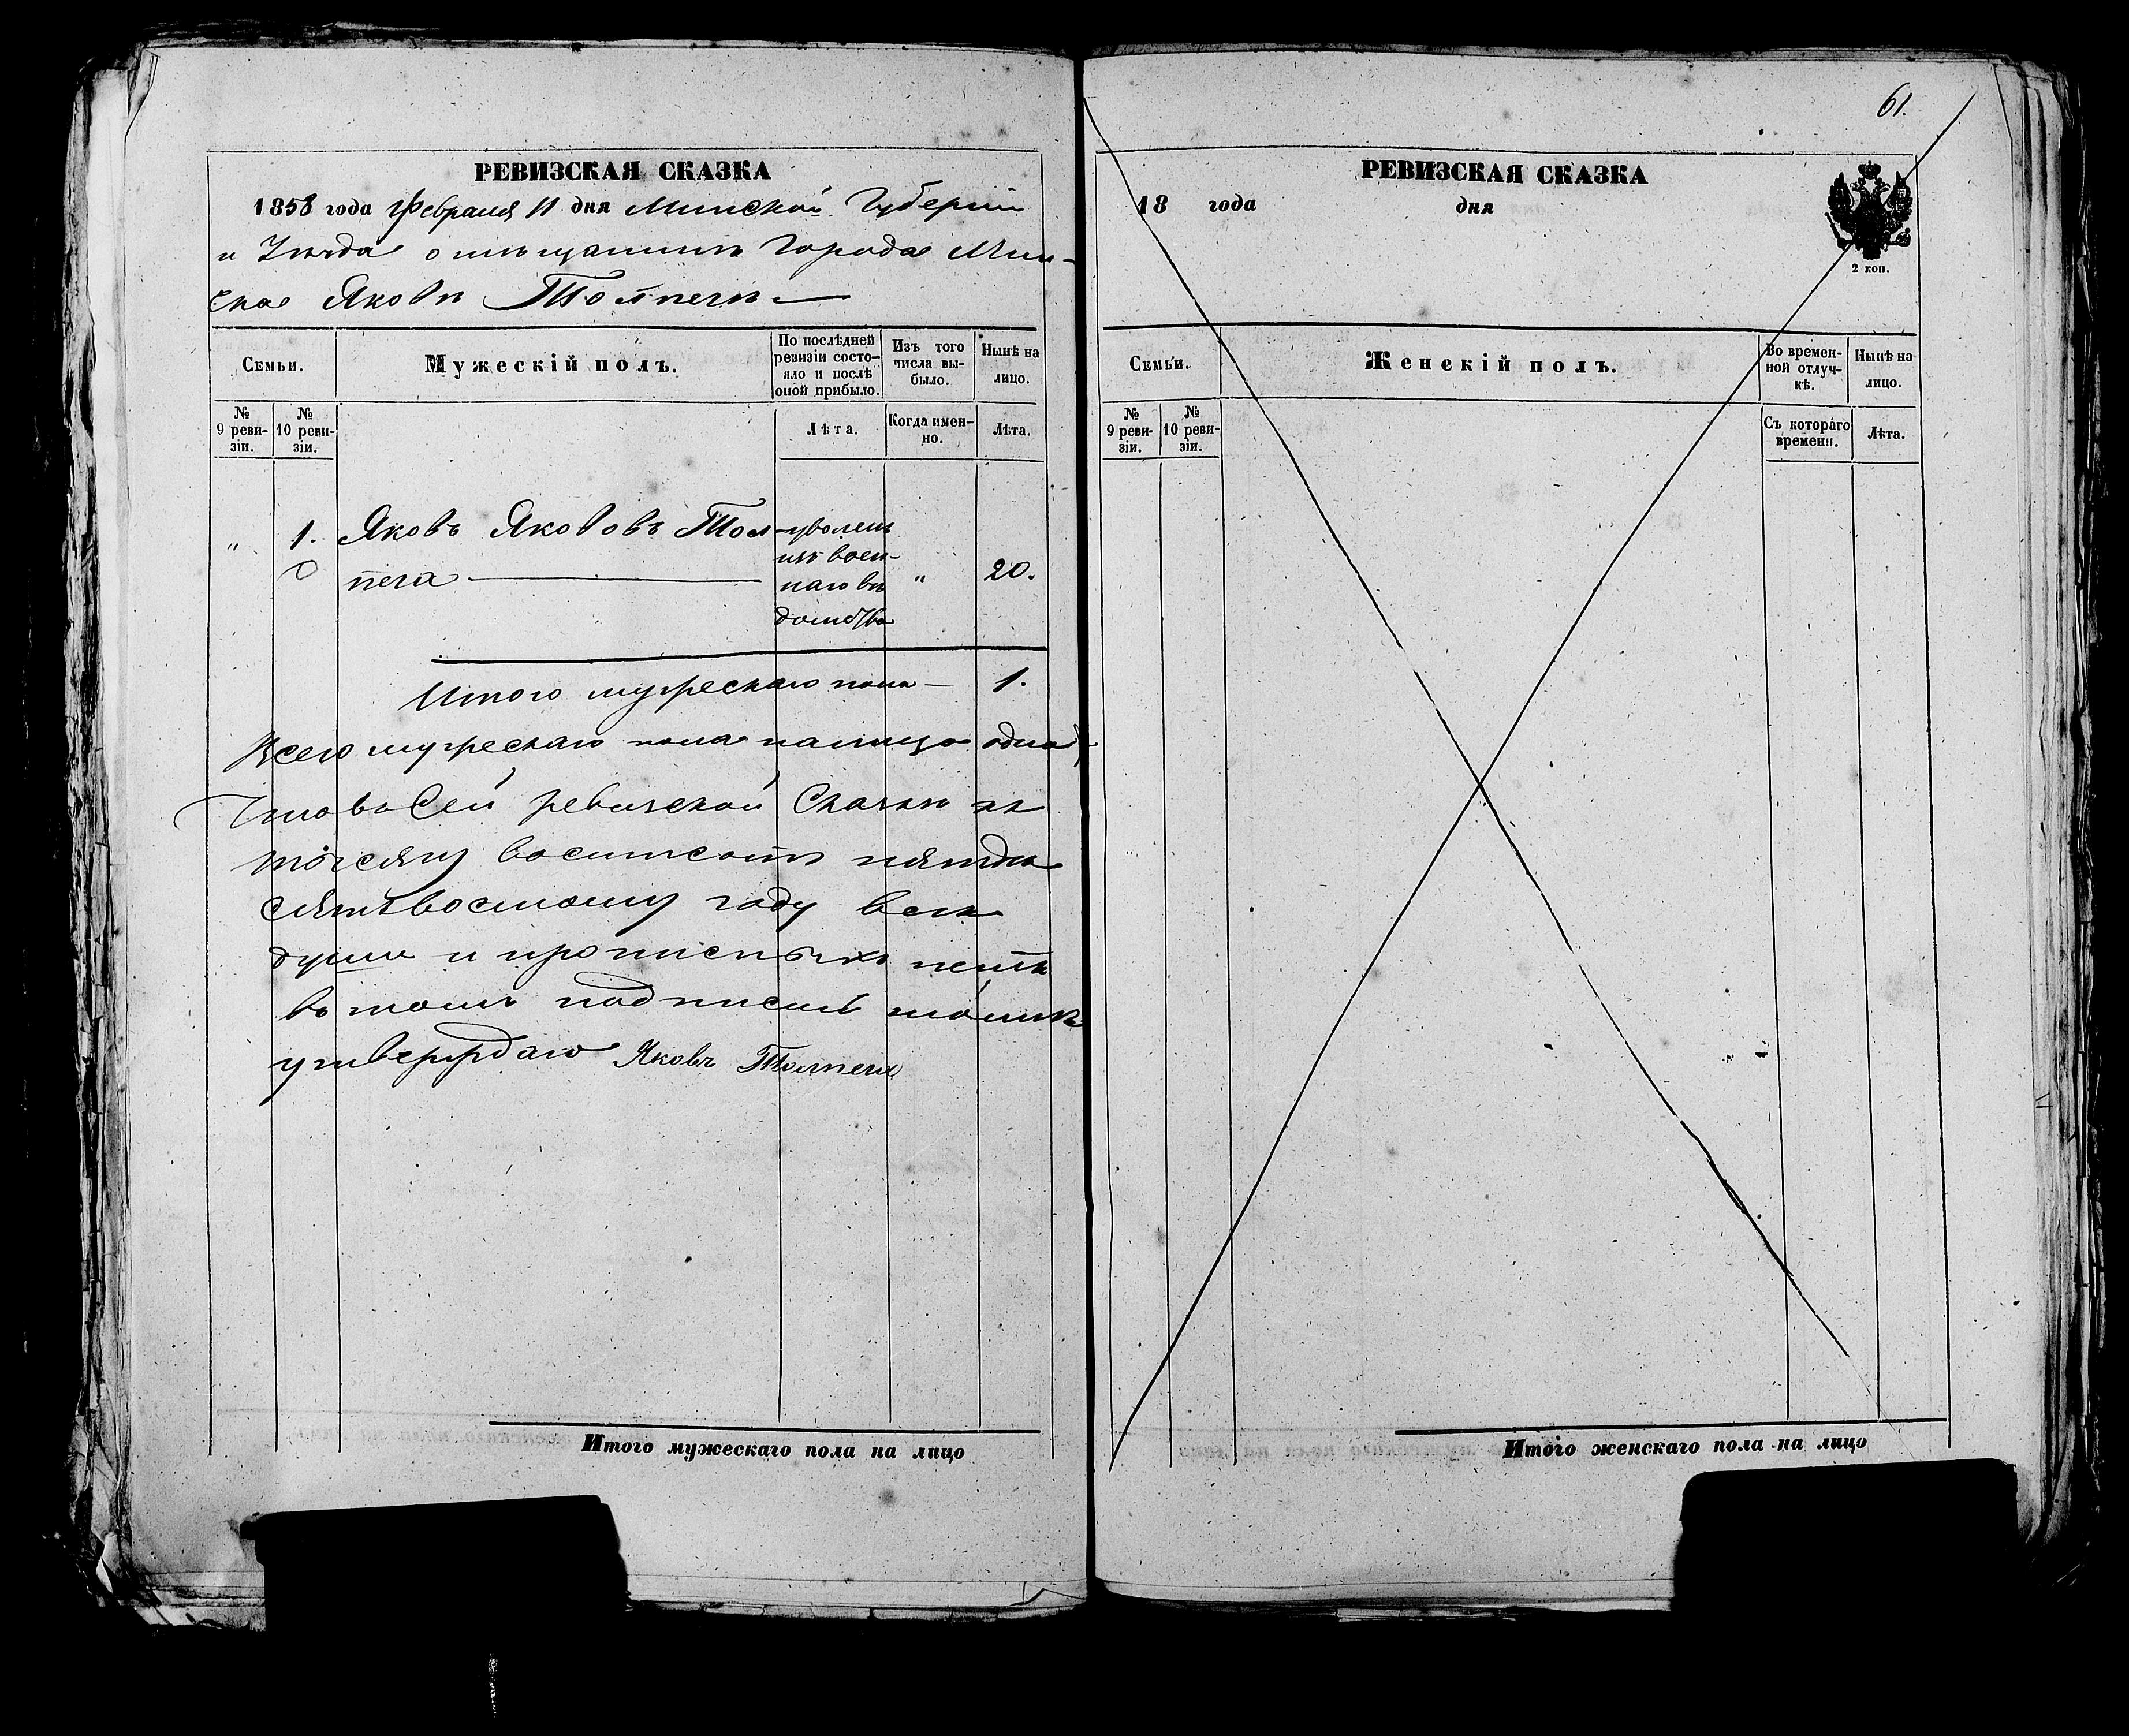 РЕВИЗСКАЯ СКАЗКА
1858 года Февраля 11 дня Минской Губерніи
и Уѣзда о мѣщанинѣ города Мин-
ска Яковѣ Толпечѣ
Семьи.
Мужескій полъ.
По послѣдней ревизіи состо-яло и послѣ оной прибыло.
Изъ того числа вы-было.
Нынѣ на лицо.
№ 9 реви-зіи.
№ 10 реви-зіи.
Лѣта.
Когда имен-но.
Лѣта.
" 1. Яковъ Якововъ Тол-
печа
уволенъ
изъ воен-
наго вѣ
домства
" 20.
Итого мужескаго пола 1.
Всего мужескаго пола налицо одна
Что въ сей ревизской сказкѣ къ
тысячу восемсотъ пятде
сятъвосмому году всѣ
души и прописныхъ нетъ
въ томъ подписомъ
утверждаю Яковъ Толпеча
Итого мужескаго пола на лицо
61.
РЕВИЗСКАЯ СКАЗКА
18 года дня
2 коп.
Семьи.
Женскій полъ.
Во времен-ной отлуч-кѣ.
Нынѣ на лицо.
№ 9 реви-зіи.
№ 10 реви-зіи.
Съ котораго времени.
Лѣта.
Итого женскаго пола на лицо